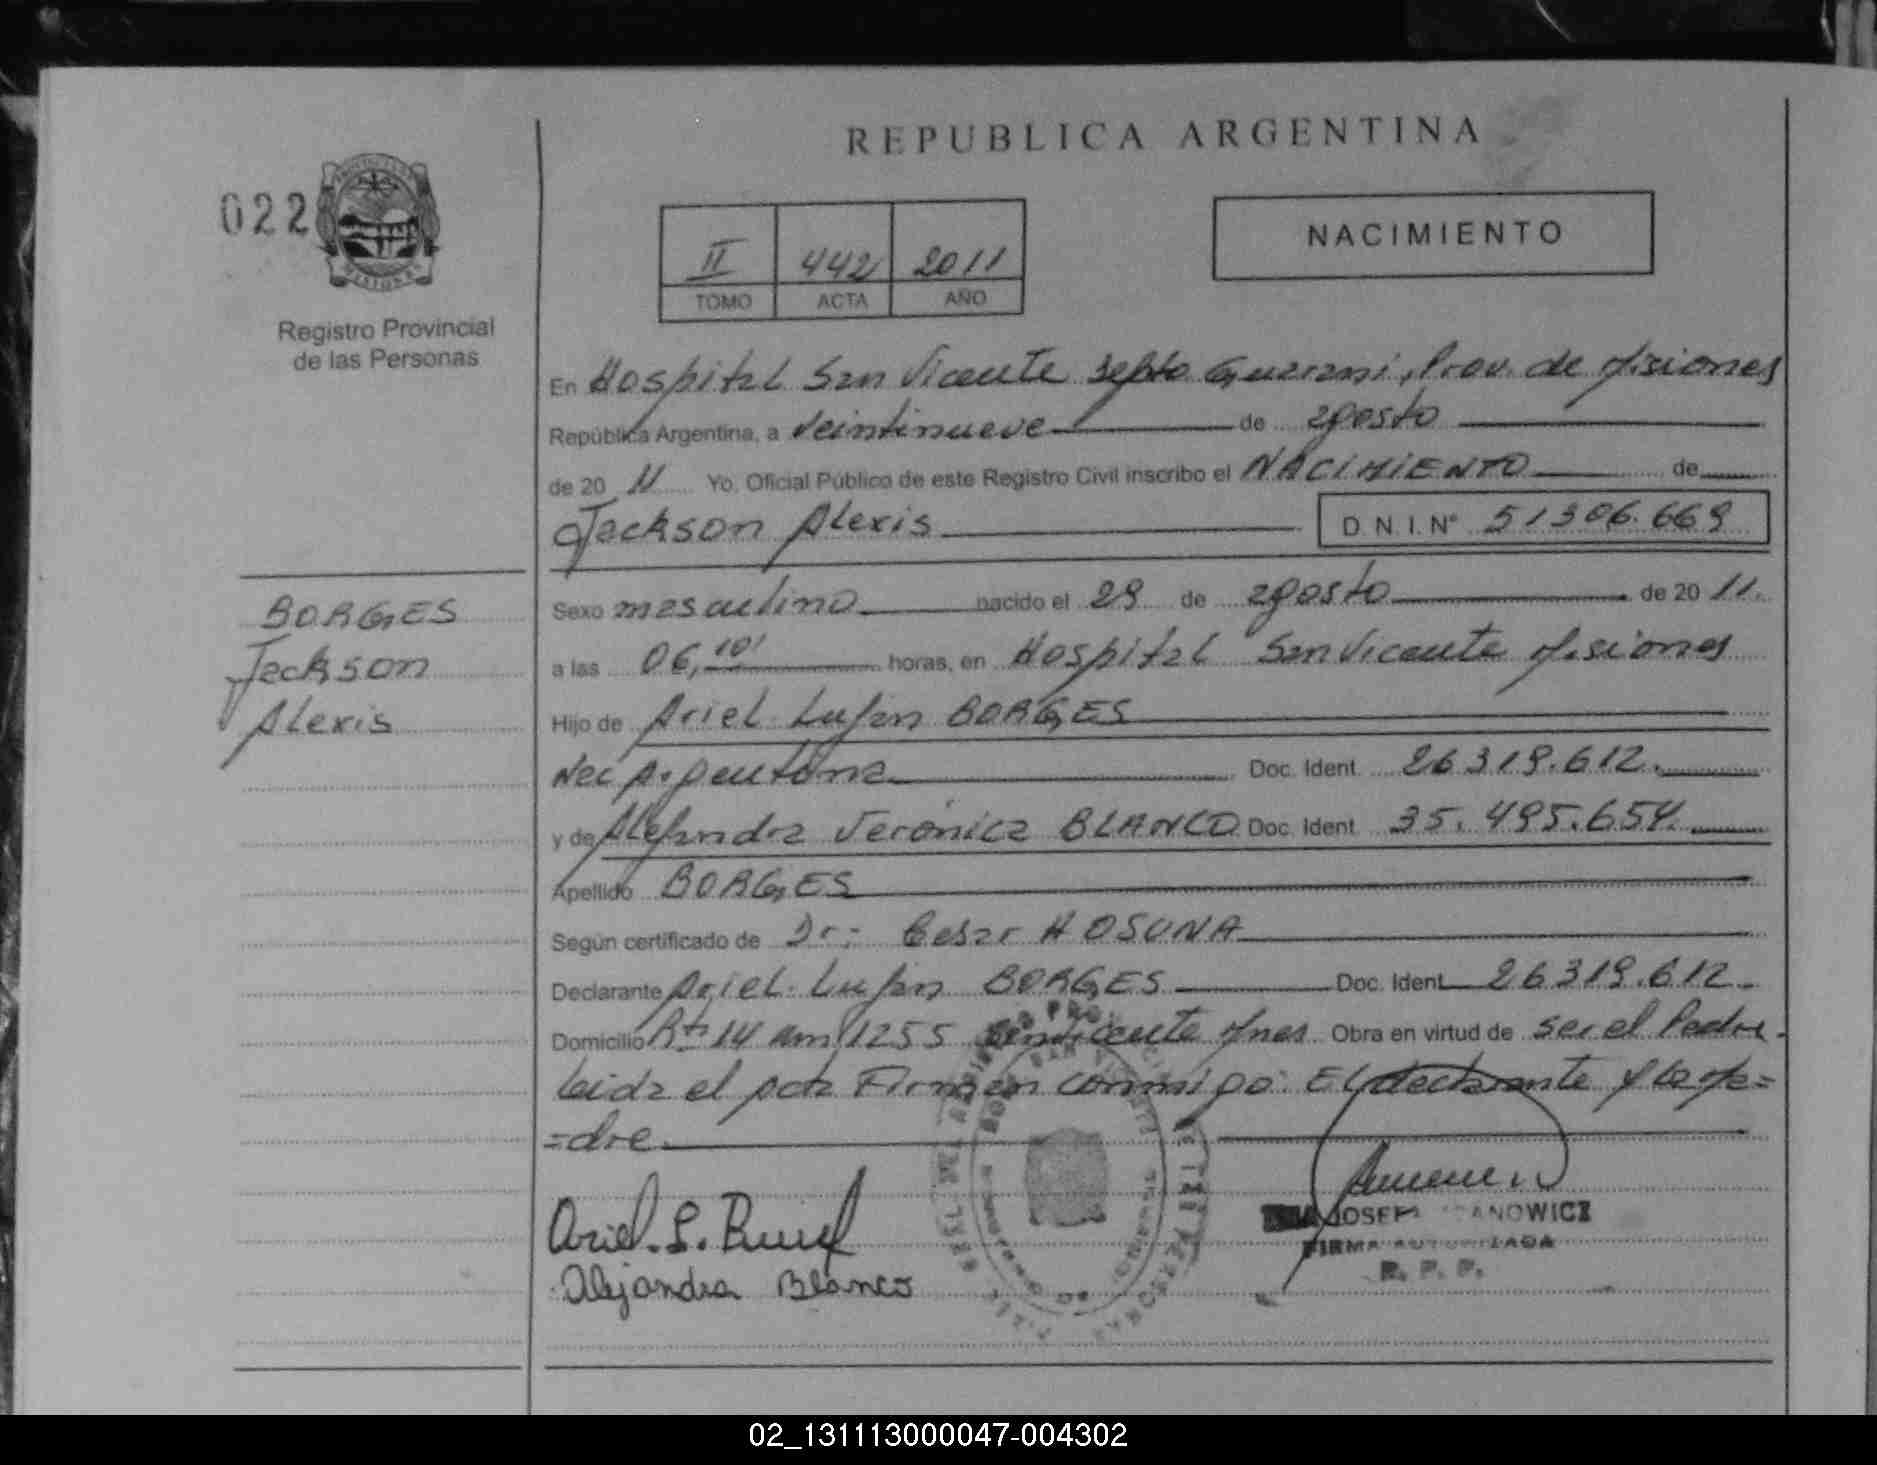 REPUBLICA ARGENTINA
022
MISIONES
Registro Provincial
de las Personas
II 442 2011
TOMO ACTA AÑO
NACIMIENTO
En Hospital San Vicente Depto Guarani, Prov. de Misiones
República Argentina, a veintinueve de agosto
de 20 11 Yo, Oficial Público de este Registro Civil inscribo el NACIMIENTO de
Jackson Alexis D.N.I.Nº 51306.669
BORGES
Jackson
Alexis
Sexo masculino nacido el 29 de agosto de 20 11.
a las 06,10' horas, en Hospital San Vicente Misiones
Hijo de Ariel Lujan BORGES
Nac Argentina Doc. Ident. 26319.612.
y de Alejandra Verónica BLANCO Doc. Ident. 35.495.654.
Apellido BORGES
Según certificado de Dr: Cesar HOSUNA
Declarante Ariel Lujan BORGES Doc. Ident. 26319.612.
Domicilio Rta 14 Km 1255 San Vicente Mnes Obra en virtud de ser el Padre.
Leida el acta Firman conmigo: El declarante y la Ma=
=dre.
Ariel. L.
Alejandra Blanco
FIRMA AUTORIZADA
R. P. P.
02_131113000047-004302